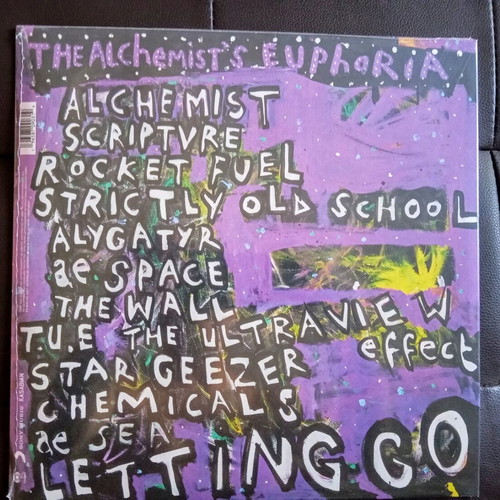 THE ALCHEMIST'S EUPHORIA
ALCHEMIST
SCRIPTVRE
ROCKET FUEL
STRICTLY OLD SCHOOL
ALYGATYR
ae SPACE
THE WALL
T.U.E THE ULTRAVIEW
effect
STARGEEZER
CHEMICALS
ae SEA
LETTING GO
SONY MUSIC KASABIAN